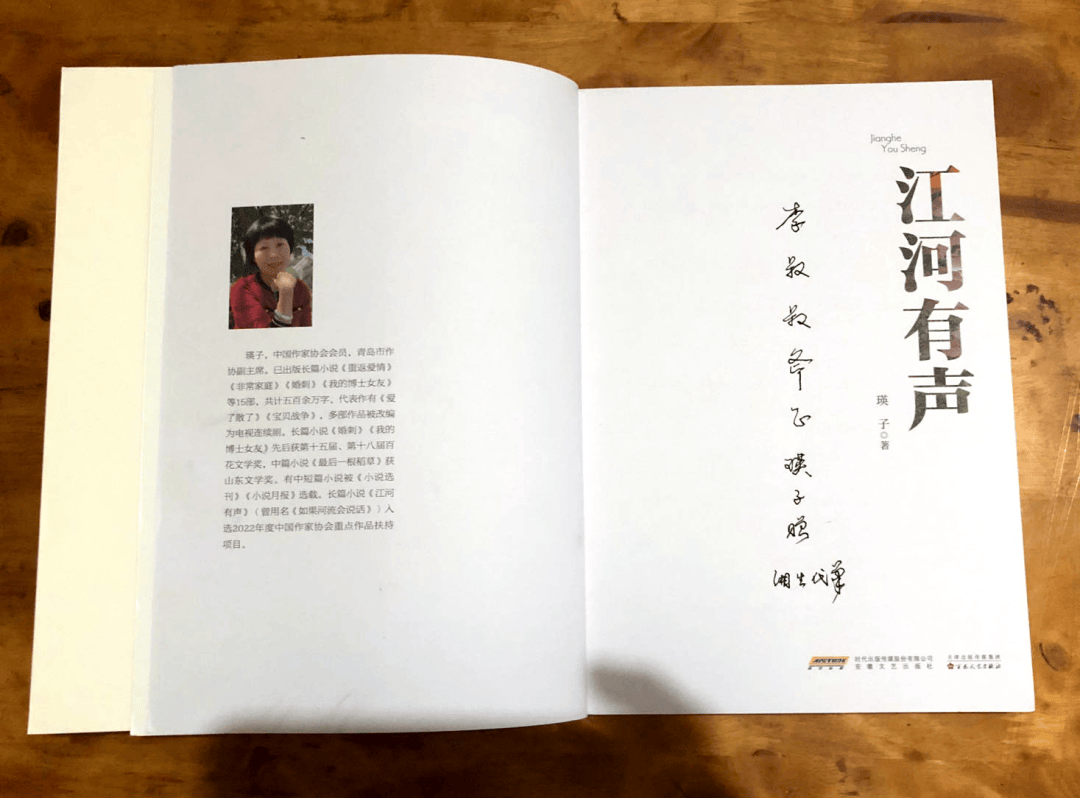 瑛子，中国作家协会会员，青岛市作
协副主席。已出版长篇小说《重返爱情》
《非常家庭》《婚刺》《我的博士女友》
等15部，共计五百余万字，代表作有《爱
了散了》《宝贝战争》，多部作品被改编
为电视连续剧。长篇小说《婚刺》《我的
博士女友》先后获第十五届、第十八届百
花文学奖，中篇小说《最后一根稻草》获
山东文学奖。有中短篇小说被《小说选
刊》《小说月报》选载。长篇小说《江河
有声》（曾用名《如果河流会说话》）入
选2022年度中国作家协会重点作品扶持
项目。
Jianghe
You Sheng
江河有声
瑛子◎著
李叔叔斧正
瑛子赠
湘生代笔
时代出版传媒股份有限公司
安徽文艺出版社
天津出版传媒集团
百花文艺出版社